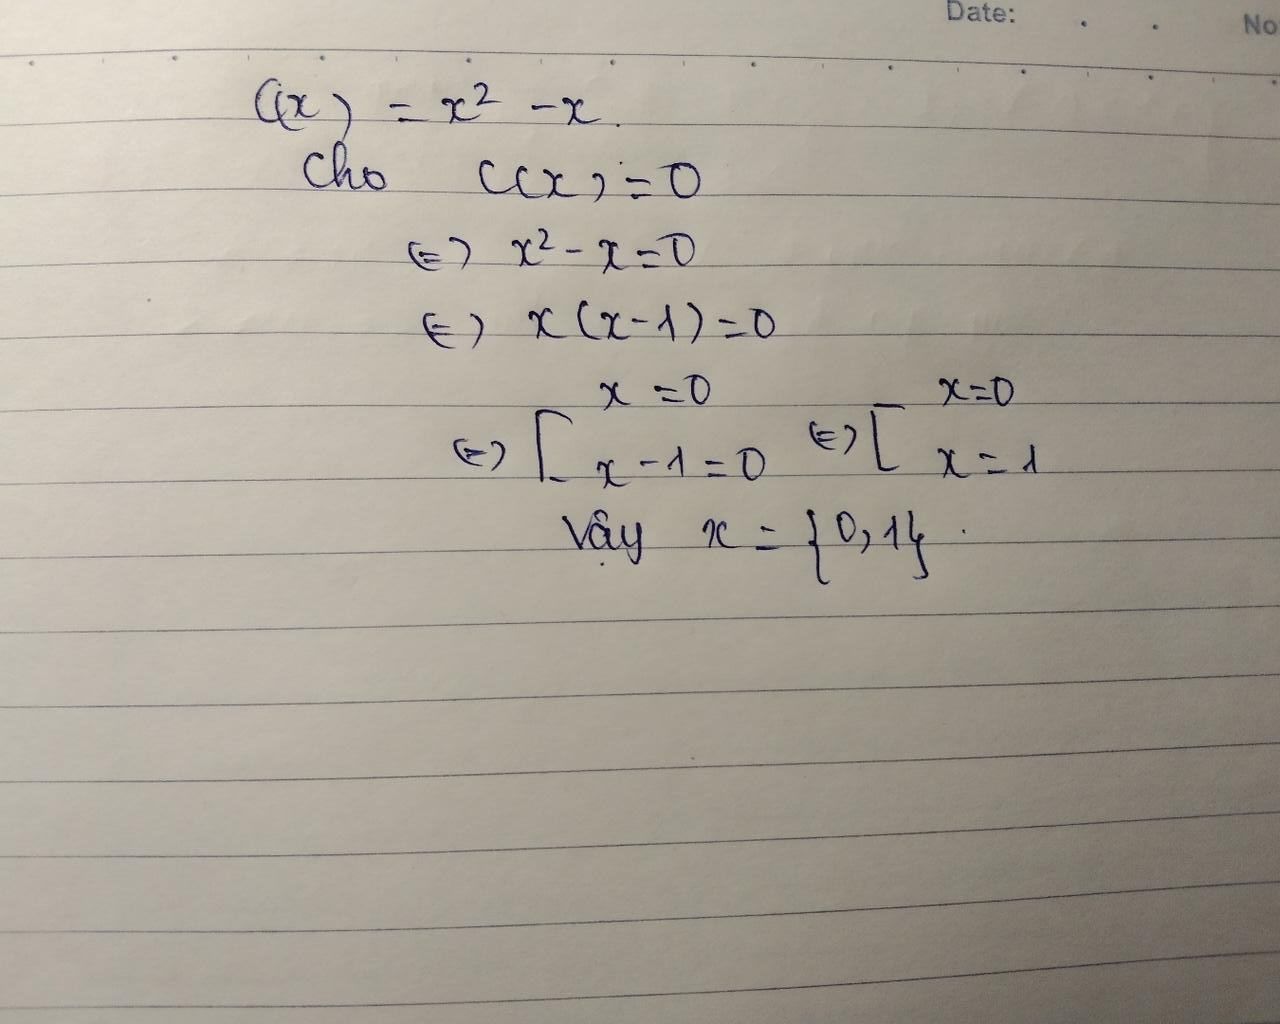 Date: . . No
C(x) = x² - x.
Cho C(x) = 0
(=) x² - x = 0
(=) x(x-1) = 0
(=) [ x = 0 (=) [ x = 0
x - 1 = 0 x = 1
Vậy x = {0, 1}.